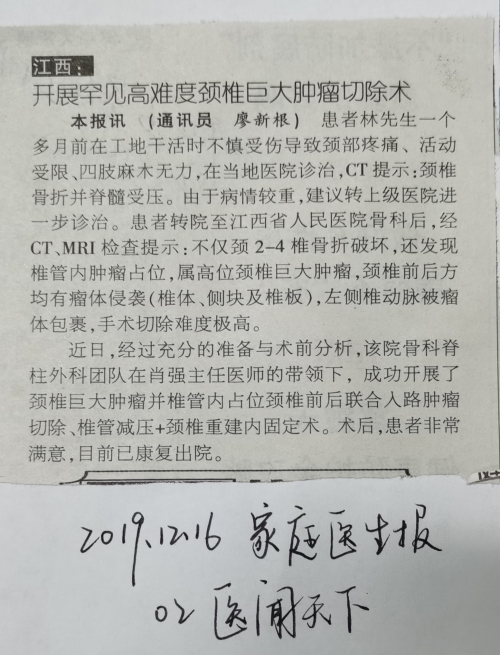 江西：
开展罕见高难度颈椎巨大肿瘤切除术
本报讯 (通讯员 廖新根) 患者林先生一个
多月前在工地干活时不慎受伤导致颈部疼痛、活动
受限、四肢麻木无力，在当地医院诊治，CT提示：颈椎
骨折并脊髓受压。由于病情较重，建议转上级医院进
一步诊治。患者转院至江西省人民医院骨科后，经
CT、MRI检查提示：不仅颈2-4椎骨折破坏，还发现
椎管内肿瘤占位，属高位颈椎巨大肿瘤，颈椎前后方
均有瘤体侵袭(椎体、侧块及椎板)，左侧椎动脉被瘤
体包裹，手术切除难度极高。
近日，经过充分的准备与术前分析，该院骨科脊
柱外科团队在肖强主任医师的带领下，成功开展了
颈椎巨大肿瘤并椎管内占位颈椎前后联合入路肿瘤
切除、椎管减压+颈椎重建内固定术。术后，患者非常
满意，目前已康复出院。
2019.12.16 家庭医生报
02 医闻天下